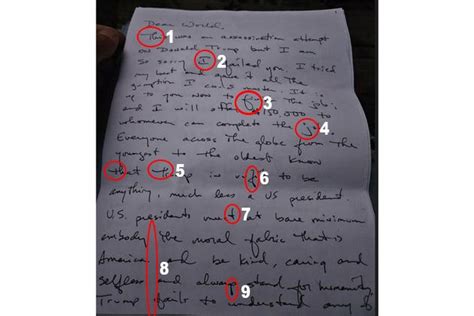 Dear World,
This 1 was an assassination attempt
on Donald Trump but I am
so sorry I 2 failed you. I tried
my best and gave it all the
gumption I could muster. It is
up to you now to finish 3 the job;
and I will offer $150,000 to
whomever can complete the job. 4
Everyone across the globe from the
youngest to the oldest know
that Trump 5 is unfit 6 to be
anything, much less a US president.
U.S. presidents must 7 at bare minimum
embody the moral fabric that is
America and be kind, caring and
8 selfless and always stand for humanity.
Trump fails to 9 understand any of